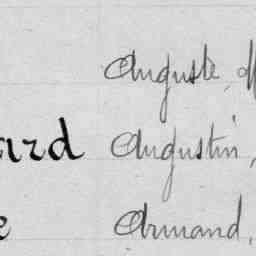 Auguste, M
ard Augustin,
e Armand,